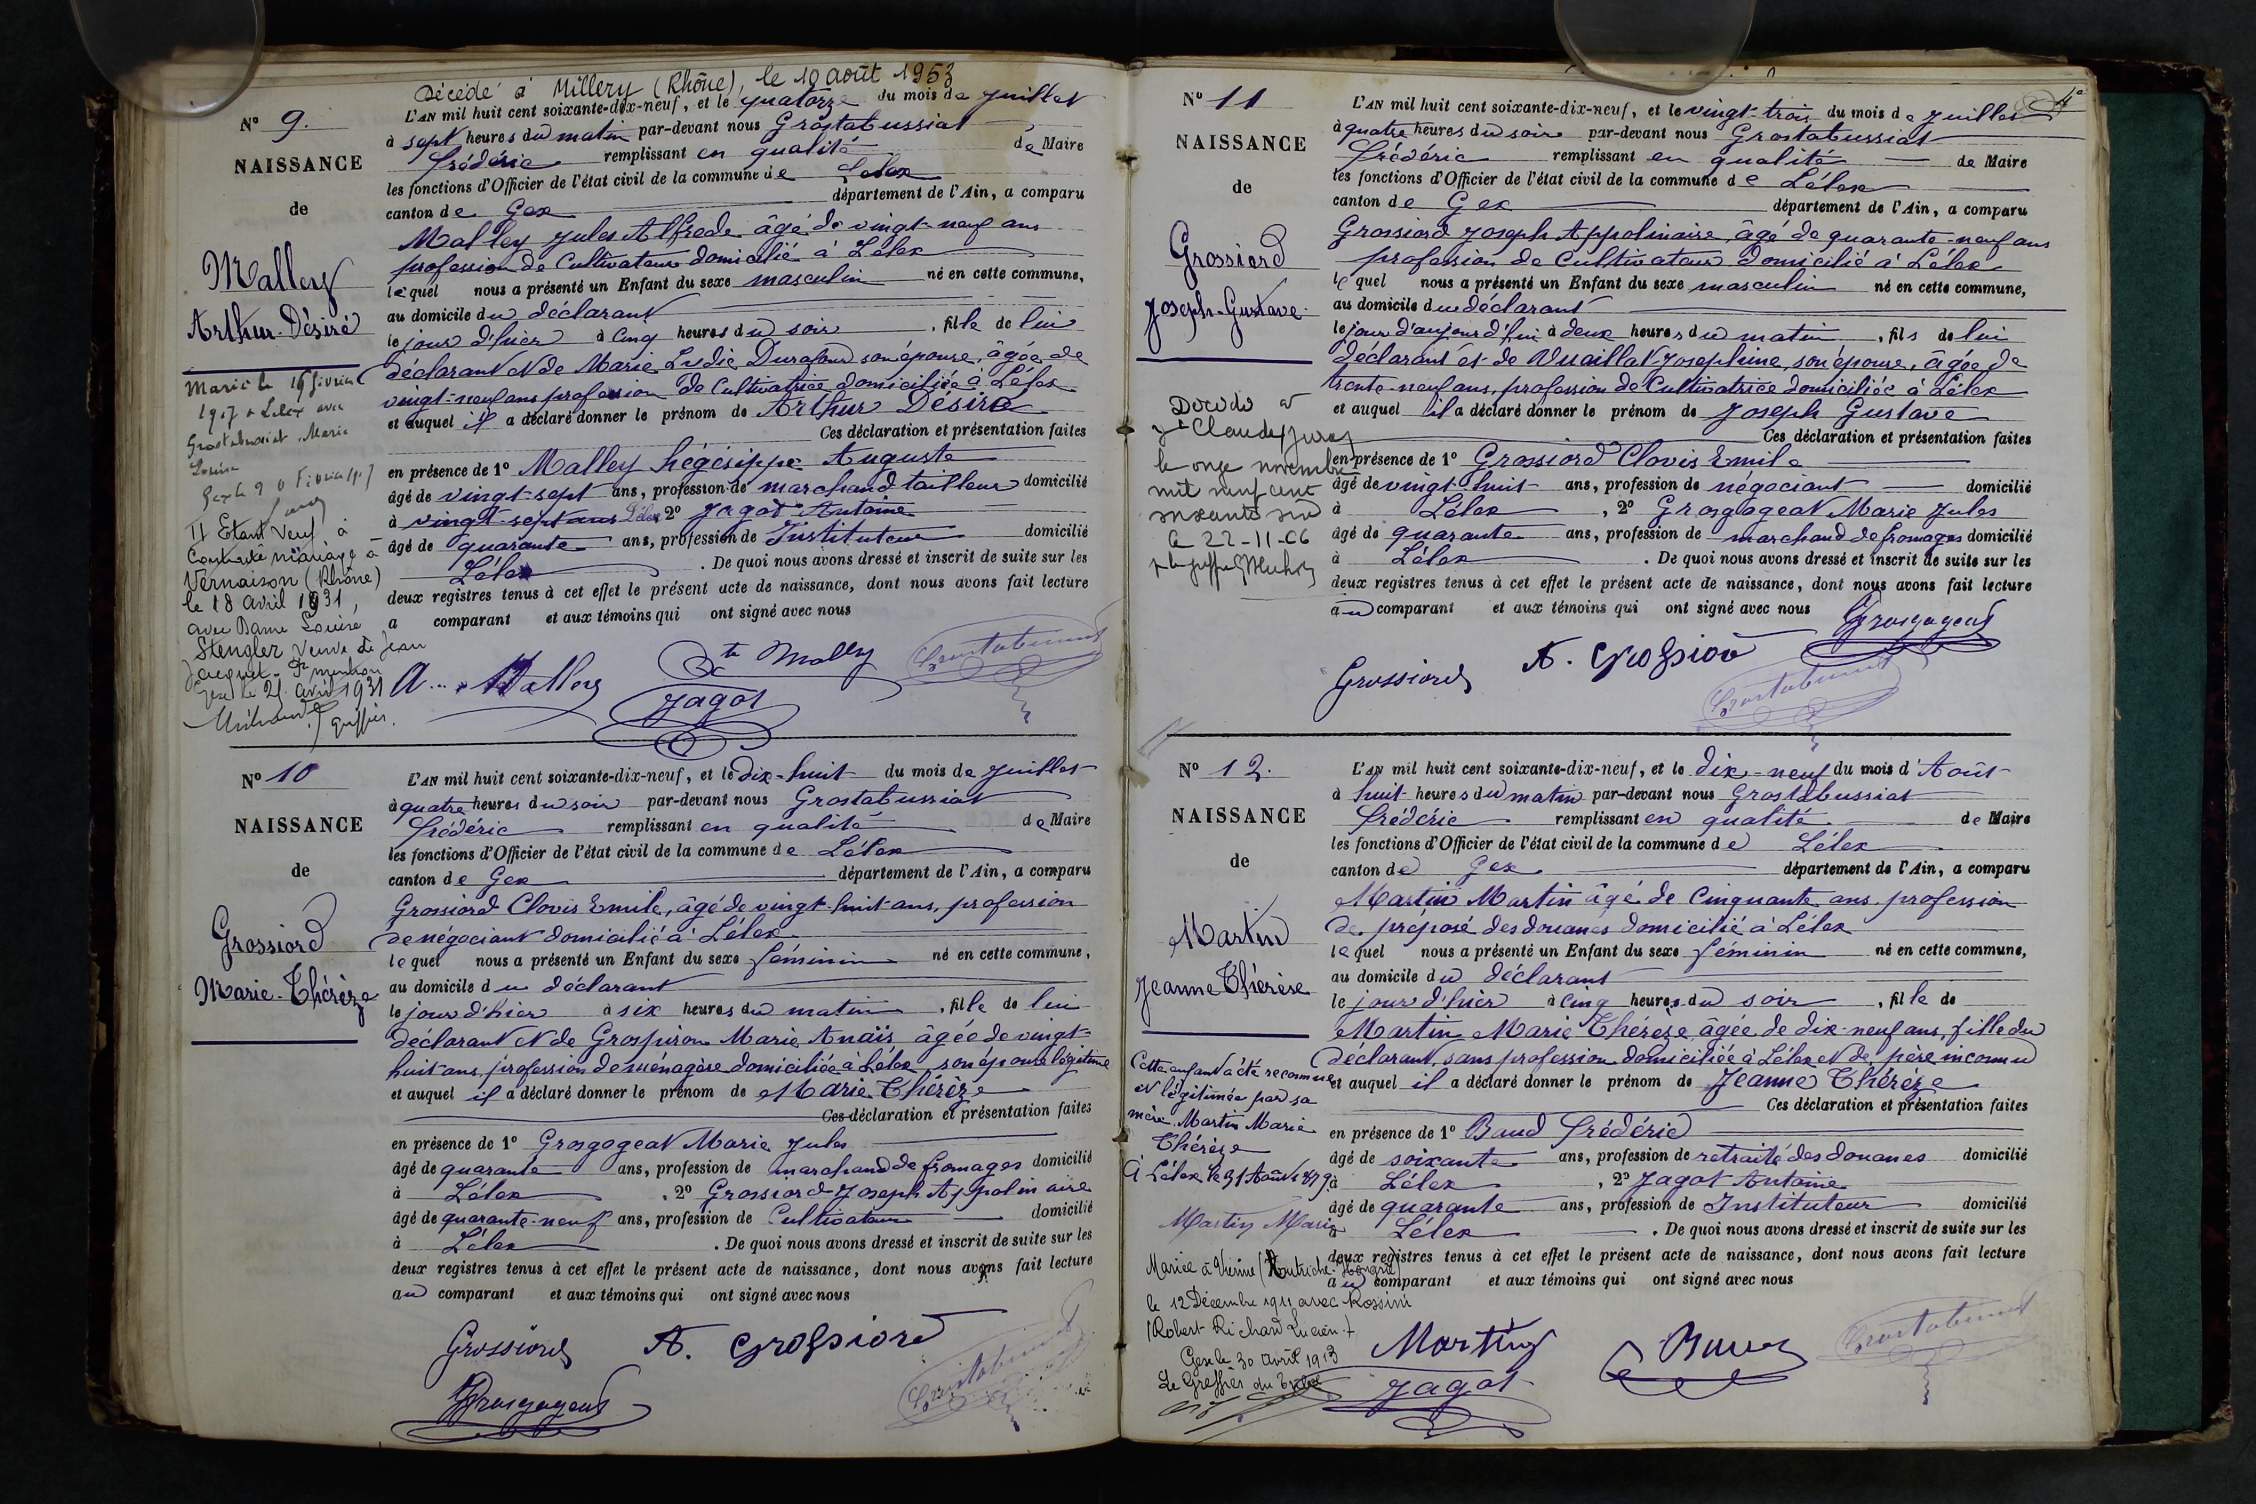 Décédé à Millery (Rhône), le 10 août 1953
N° 9.
NAISSANCE
de
Malley
Arthur Désiré
Marié le 16 février
1907 à Lélex avec
Grostabussiat Marie
Gex le 20 février 1907
II Etant Veuf à
Contracté mariage à
Vernaison (Rhône)
le 18 avril 1931,
avec Dame Louise
Stengler veuve de Jean
Jacquet. Pr mention
Gex le 21 avril 1931
greffier.
L'AN mil huit cent soixante-dix-neuf, et le quatorze du mois de Juillet
à sept heures du matin par-devant nous Grostabussiat
Frédéric remplissant en qualité de Maire
les fonctions d'Officier de l'état civil de la commune de Lélex
canton de Gex département de l'Ain, a comparu
Malley Jules Alfrede âgé de vingt-neuf ans
profession de Cultivateur domicilié à Lélex
lequel nous a présenté un Enfant du sexe masculin né en cette commune,
au domicile du déclarant
le jour d'hier à cinq heures du soir, fille de lui
déclarant et de Marie Ludie Durafour son épouse, âgée de
vingt-neuf ans profession de Cultivatrice domiciliée à Lélex
et auquel il a déclaré donner le prénom de Arthur Désiré
Ces déclaration et présentation faites
en présence de 1° Malley hégésippe Auguste
âgé de vingt-sept ans, profession de marchand tailleur domicilié
à vingt-sept ans Lélex 2° Jagot Antoine
âgé de quarante ans, profession de Instituteur domicilié
Lélex. De quoi nous avons dressé et inscrit de suite sur les
deux registres tenus à cet effet le présent acte de naissance, dont nous avons fait lecture
a comparant et aux témoins qui ont signé avec nous
A. Malley
Malley
Grostabussiat
Jagot
N° 10
NAISSANCE
de
Grossiord
Marie-Thérèze
L'AN mil huit cent soixante-dix-neuf, et le dix-huit du mois de Juillet
à quatre heures du soir par-devant nous Grostabussiat
Frédéric remplissant en qualité de Maire
les fonctions d'Officier de l'état civil de la commune de Lélex
canton de Gex département de l'Ain, a comparu
Grossiord Clovis Emile, âgé de vingt-huit ans, profession
de négociant domicilié à Lélex
lequel nous a présenté un Enfant du sexe féminin né en cette commune,
au domicile du déclarant
le jour d'hier à six heures du matin, fille de lui
déclarant et de Grospiron Marie Anaïs âgée de vingt-
huit ans, profession de ménagère domiciliée à Lélex, son épouse légitime
et auquel il a déclaré donner le prénom de Marie Thérèze
Ces déclaration et présentation faites
en présence de 1° Grosgogeat Marie Jules
âgé de quarante ans, profession de marchand de fromages domicilié
à Lélex, 2° Grossiord Joseph Appolinaire
âgé de quarante-neuf ans, profession de Cultivateur domicilié
à Lélex. De quoi nous avons dressé et inscrit de suite sur les
deux registres tenus à cet effet le présent acte de naissance, dont nous avons fait lecture
au comparant et aux témoins qui ont signé avec nous
Grossiord A. Grossiord
Grosgogeat Grostabussiat
4e
N° 11
NAISSANCE
de
Grossiord
Joseph-Gustave
Décédé à
St Claude Jura
le onze novembre
mil neuf cent
soixante six
le 22-11-66
L'AN mil huit cent soixante-dix-neuf, et le vingt-trois du mois de Juillet
à quatre heures du soir par-devant nous Grostabussiat
Frédéric remplissant en qualité de Maire
les fonctions d'Officier de l'état civil de la commune de Lélex
canton de Gex département de l'Ain, a comparu
Grossiord Joseph Appolinaire, âgé de quarante-neuf ans
profession de Cultivateur domicilié à Lélex
lequel nous a présenté un Enfant du sexe masculin né en cette commune,
au domicile du déclarant
le jour d'aujourd'hui à deux heures du matin, fils de lui
déclarant et de Vuaillat Josephine, son épouse, âgée de
trente-neuf ans, profession de Cultivatrice domiciliée à Lélex
et auquel il a déclaré donner le prénom de Joseph Gustave
Ces déclaration et présentation faites
en présence de 1° Grossiord Clovis Emile
âgé de vingt-huit ans, profession de négociant domicilié
à Lélex, 2° Grosgogeat Marie Jules
âgé de quarante ans, profession de marchand de fromages domicilié
à Lélex. De quoi nous avons dressé et inscrit de suite sur les
deux registres tenus à cet effet le présent acte de naissance, dont nous avons fait lecture
au comparant et aux témoins qui ont signé avec nous
Grosgogeat
Grossiord A. Grossiord
Grostabussiat
N° 12.
NAISSANCE
de
Martin
Jeanne Thérèse
Cette enfant a été reconnue
et légitimée par sa
mère Martin Marie
Thérèze
à Lélex le 31 Août 1879.
Martin Marie
Mariée à Vienne (Autriche-Hongrie)
le 12 Décembre 1911 avec Rossini
(Robert Richard Lucien)
Gex le 30 avril 1913
Le Greffier du Tribal
L'AN mil huit cent soixante-dix-neuf, et le dix-neuf du mois d'Août
à huit heures du matin par-devant nous Grostabussiat
Frédéric remplissant en qualité de Maire
les fonctions d'Officier de l'état civil de la commune de Lélex
canton de Gex département de l'Ain, a comparu
Martin Martin âgé de Cinquante ans, profession
de préposé des douanes domicilié à Lélex
lequel nous a présenté un Enfant du sexe féminin né en cette commune,
au domicile du déclarant
le jour d'hier à cinq heures du soir, fille de
Martin Marie Thérèze âgée de dix-neuf ans, fille du
déclarant, sans profession domiciliée à Lélex et de père inconnu
et auquel il a déclaré donner le prénom de Jeanne Thérèze
Ces déclaration et présentation faites
en présence de 1° Baud Frédéric
âgé de soixante ans, profession de retraité des douanes domicilié
à Lélex, 2° Jagot Antoine
âgé de quarante ans, profession de Instituteur domicilié
à Lélex. De quoi nous avons dressé et inscrit de suite sur les
deux registres tenus à cet effet le présent acte de naissance, dont nous avons fait lecture
au comparant et aux témoins qui ont signé avec nous
Martin Baud Grostabussiat
Jagot